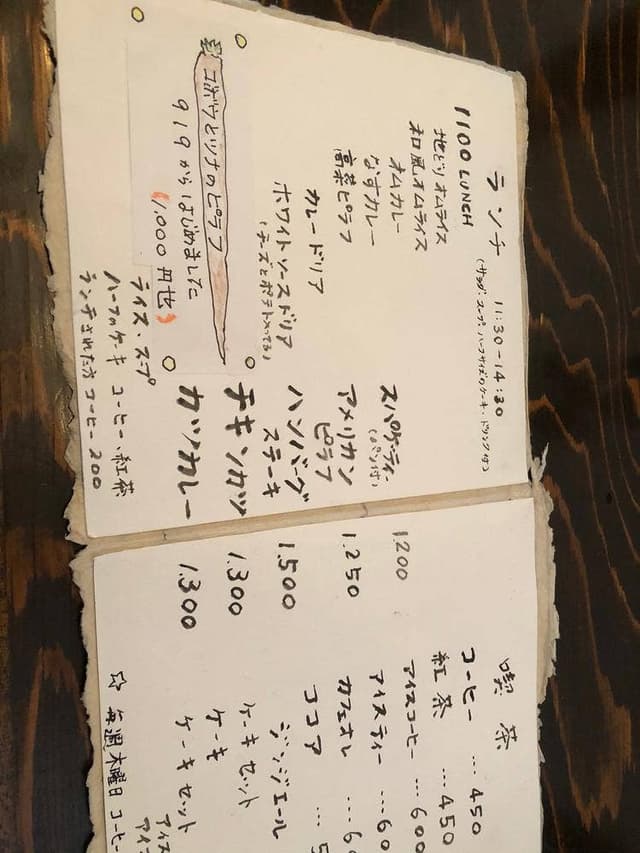 ランチ 11:30-14:30
(サラダ・スープ・ハーフサイズのケーキ・ドリンク付)
1100 LUNCH
地どりオムライス
和風オムライス
オムカレー
なすカレー
高菜ピラフ
カレードリア
ホワイトソースドリア
(チーズとポテトのってる)
ゴボウとツナのピラフ
919からはじめました
(1,000円せ)
スパゲティ 1.200
(パン付)
アメリカンピラフ 1.250
ハンバーグステーキ 1.500
チキンカツ 1.300
カツカレー 1.300
ライス・スープ
ハーフのケーキ コーヒー、紅茶
ランチされた方 コーヒー 200
喫茶
コーヒー … 450
紅茶 … 450
アイスコーヒー … 600
アイスティー … 60
カフェオレ … 6
ココア … 5
ジンジエール
ケーキセット
ケーキ
ケーキセット
アイス
アイ
☆ 毎週木曜日 コーヒー